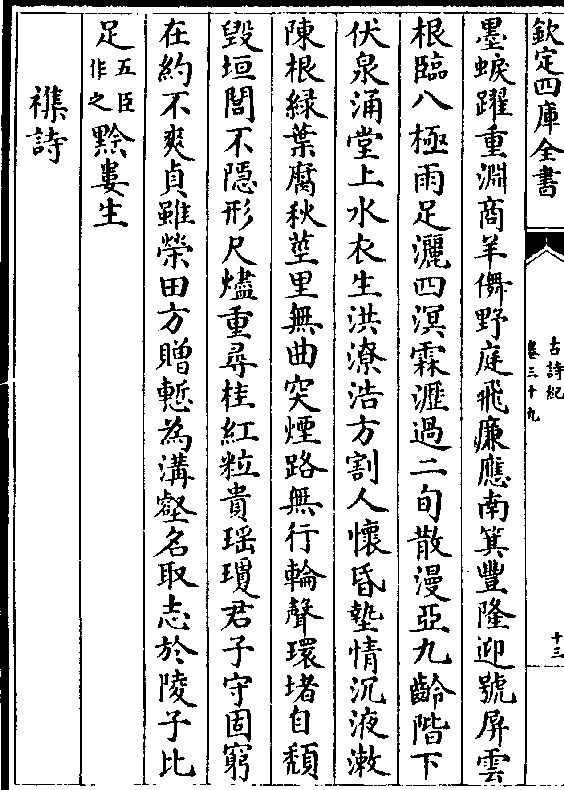 欽定四庫全書
古詩紀
卷三十九
十三
墨蜧躍重淵商羊儛野庭飛㢘應南箕豐隆迎號屏雲
根臨八極雨足灑四溟霖瀝過二旬散漫亞九齡階下
伏泉涌堂上水衣生洪潦浩方割人懷昏墊情沉液漱
陳根緑葉腐秋莖里無曲突煙路無行輪聲環堵自頽
毀垣閭不隠形尺燼重尋桂紅粒貴瑶瓊君子守固窮
在約不爽貞雖榮田方贈慙為溝壑名取志於陵子比
足五臣作之黔婁生
襍詩